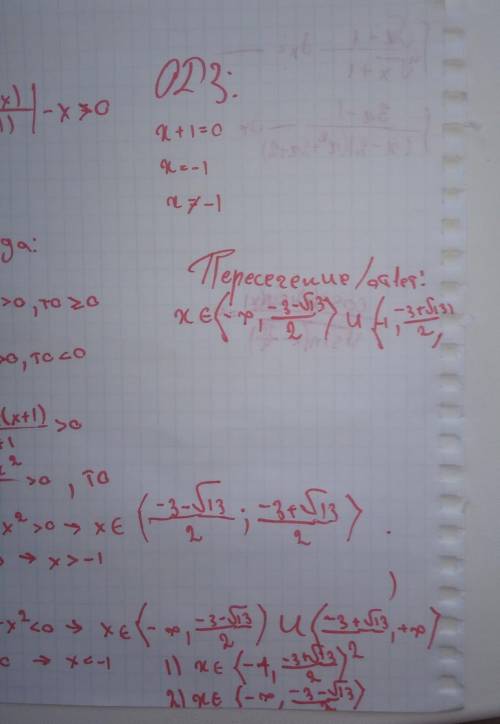 x)
1) | - x ≥ 0
ОДЗ:
x + 1 = 0
x = -1
x ≠ -1
да:
>0, то ≥0
>0, то <0
Пересечение/ответ:
x ∈ (-∞, (-3-√13)/2) ∪ (-1, (-3+√13)/2,
(x+1)/+1 > 0
x² >0, то
x² > 0 → x ∈ ((-3-√13)/2 ; (-3+√13)/2)
→ x > -1
)
-x² < 0 → x ∈ (-∞, (-3-√13)/2) ∪ ((-3+√13)/2, +∞)
→ x < -1
1) x ∈ (-1, (-3+√13)/2)
2) x ∈ (-∞, (-3-√13)/2)